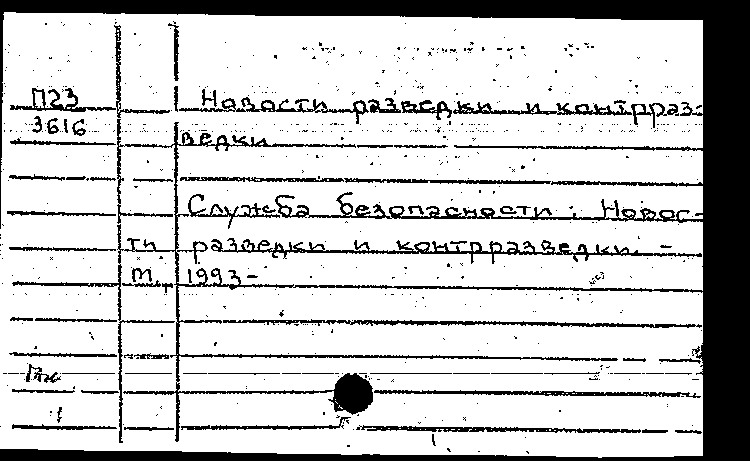 П23
3616
Новости разведки и контрраз-
ведки
Служба безопасности : Новос-
ти разведки и контрразведки. -
М., 1993-